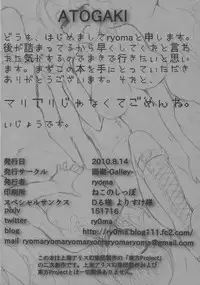 ATOGAKI
どうも、はじめましてryomaと申します。
後が詰まってるから早くしてくおと言お
れた気がするのでまきで行きたいと思い
ます。まずこの本を手にとっていただき
ありがとうございます。そして、
マリアリじゃなくてごめんね。
いじょうです。
発行日 2010.8.14
発行サークル 画廊-Galley-
発行者 ry0ma
印刷所 ねこのしっぽ
スペシャルサンクス D6様 よりすけ様
pixiv 151716
twitter ry0ma
blog http://ry0ma.blog111.fc2.com/
mail ryomaryomaryomaryomaryomaryoma@gmail.com
この本は上海アリス幻樂団様の「東方Project」
の二次創作です。上海アリス幻樂団様及び
東方Projectとは一切関係ありません。